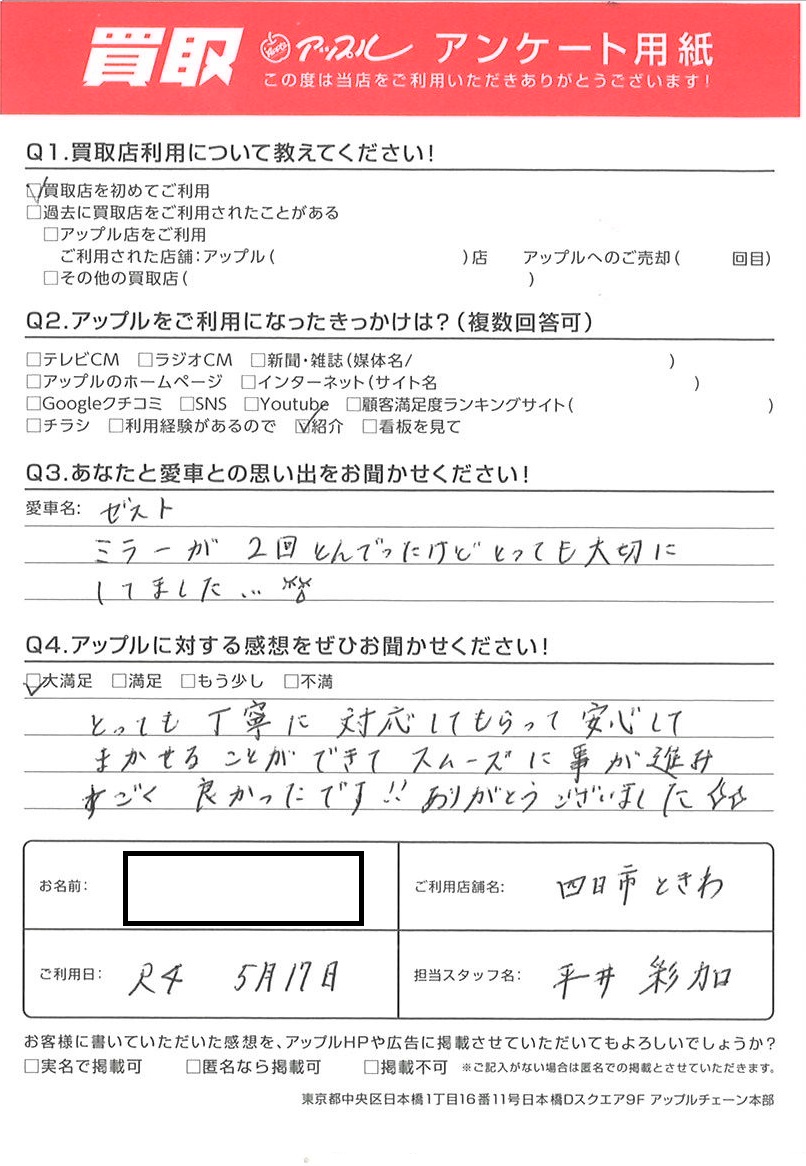 買取 APPLE アップル アンケート用紙
この度は当店をご利用いただきありがとうございます!
Q1.買取店利用について教えてください!
☑買取店を初めてご利用
□過去に買取店をご利用されたことがある
□アップル店をご利用
ご利用された店舗:アップル( )店 アップルへのご売却( 回目)
□その他の買取店( )
Q2.アップルをご利用になったきっかけは?(複数回答可)
□テレビCM □ラジオCM □新聞・雑誌(媒体名/ )
□アップルのホームページ □インターネット(サイト名 )
□Googleクチコミ □SNS □Youtube □顧客満足度ランキングサイト( )
□チラシ □利用経験があるので ☑紹介 □看板を見て
Q3.あなたと愛車との思い出をお聞かせください!
愛車名: ゼスト
ミラーが 2回とんでったけどとっても大切に
してました…
Q4.アップルに対する感想をぜひお聞かせください!
☑大満足 □満足 □もう少し □不満
とっても丁寧に対応してもらって安心して
まかせることができてスムーズに事が進み
すごく良かったです!!ありがとうございました☆☆
お名前: ご利用店舗名: 四日市ときわ
ご利用日: R4 5月17日 担当スタッフ名: 平井 彩加
お客様に書いていただいた感想を、アップルHPや広告に掲載させていただいてもよろしいでしょうか?
□実名で掲載可 □匿名なら掲載可 □掲載不可 ※ご記入がない場合は匿名での掲載とさせていただきます。
東京都中央区日本橋1丁目16番11号日本橋Dスクエア9F アップルチェーン本部